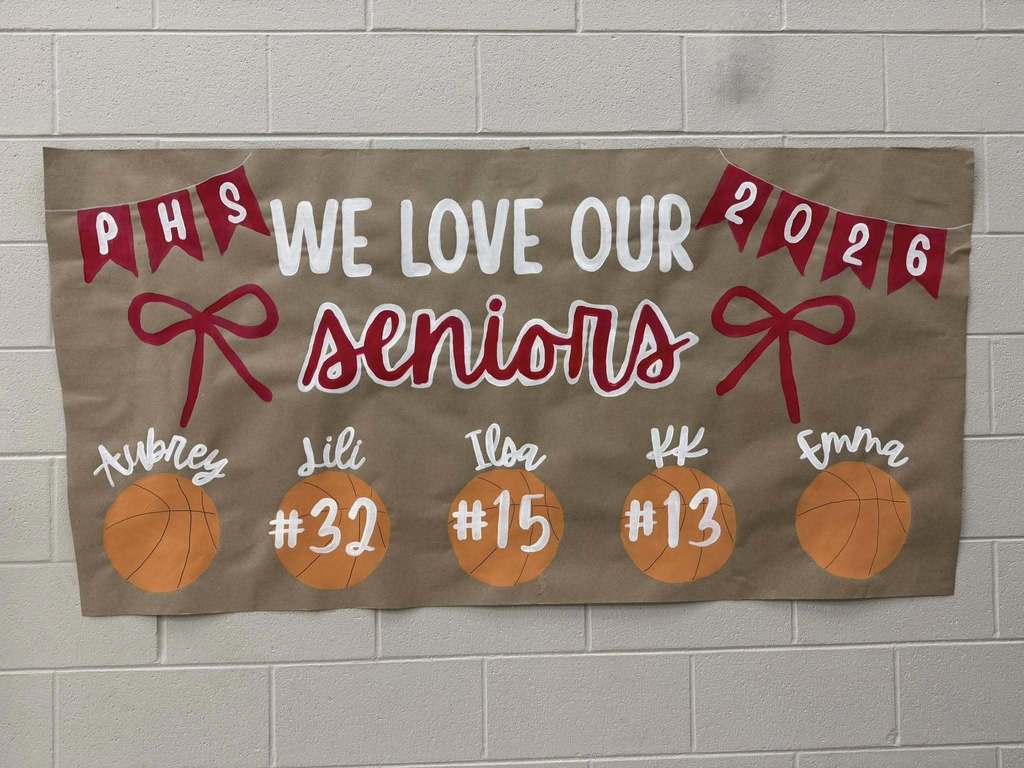 PHS WE LOVE OUR 2026
seniors
Aubrey Lili Ilsa KK Emma
#32 #15 #13